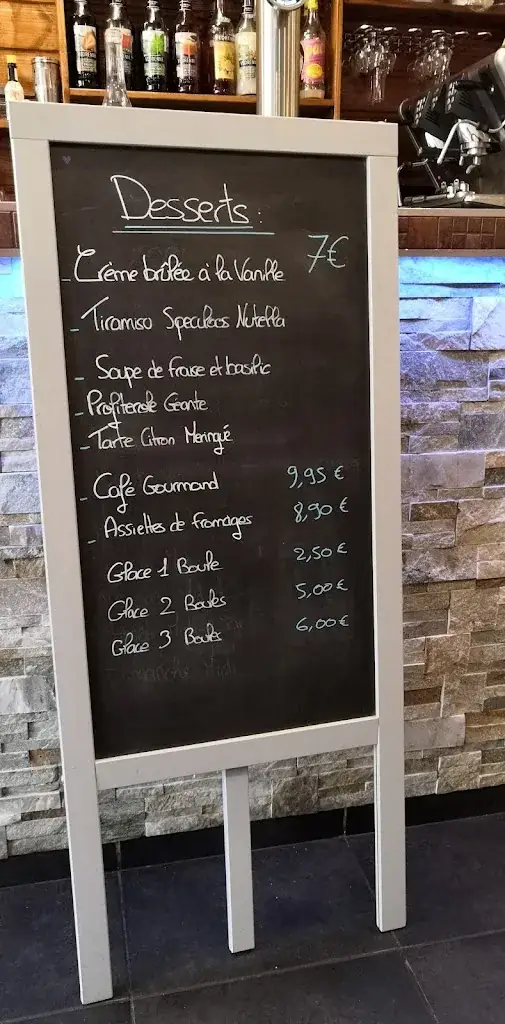 Desserts :
- Crème brûlée à la Vanille 7€
- Tiramiso Speculoos Nutella
- Soupe de fraise et basilic
- Profiterole Géante
- Tarte Citron Meringué
- Café Gourmand 9,95 €
- Assiettes de fromages 8,90 €
Glace 1 Boule 2,50 €
Glace 2 Boules 5,00 €
Glace 3 Boules 6,00 €